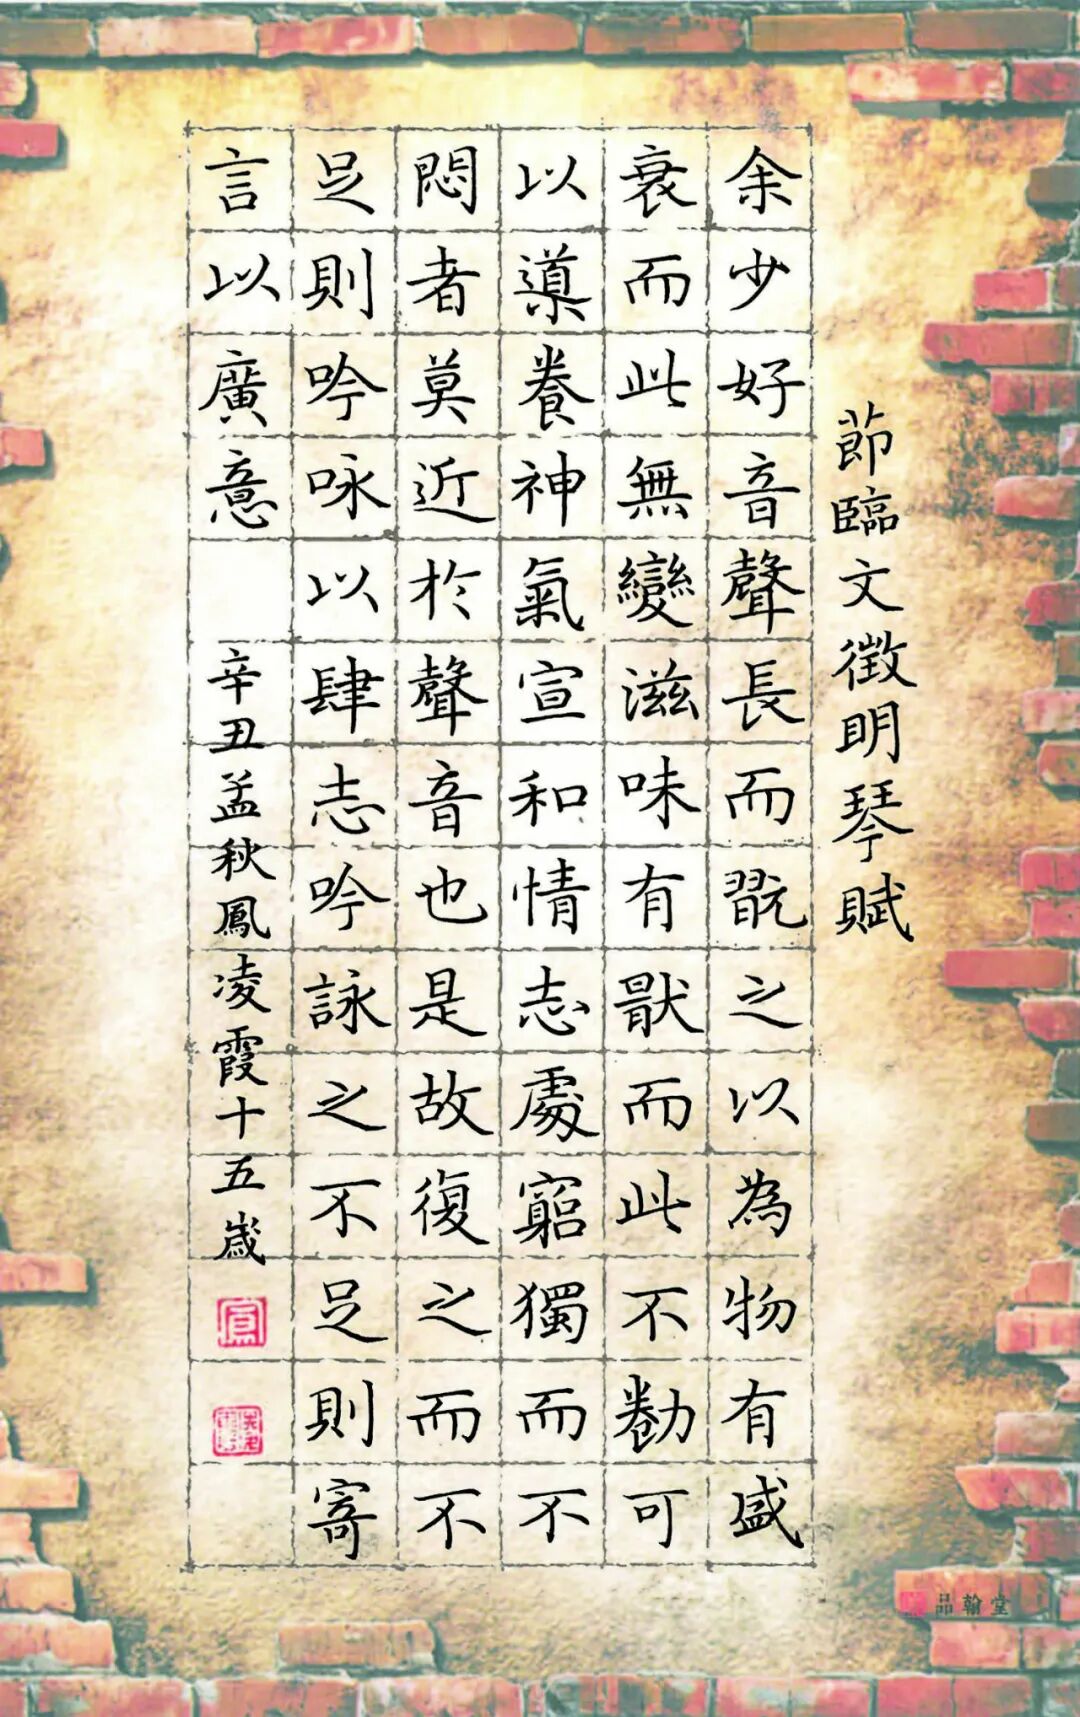 節臨文徵明琴賦
余少好音聲長而翫之以為物有盛
衰而此無變滋味有猒而此不勌可
以導養神氣宣和情志處窮獨而不
悶者莫近於聲音也是故復之而不
足則吟咏以肆志吟詠之不足則寄
言以廣意
辛丑孟秋鳳凌霞十五歲
品翰堂